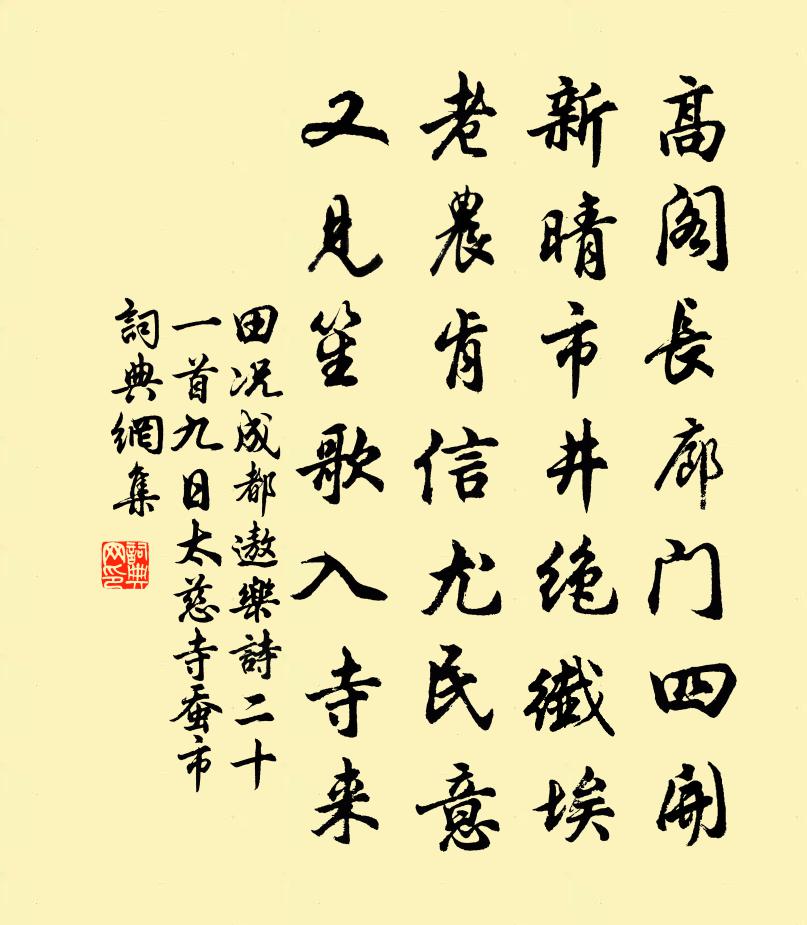 高阁長廊门四開
新晴市井绝纖埃
老農肯信尤民意
又見笙歌入寺来
田况成都遨樂詩二十
一首九日太慈寺蚕市
詞典網集
詞典网印